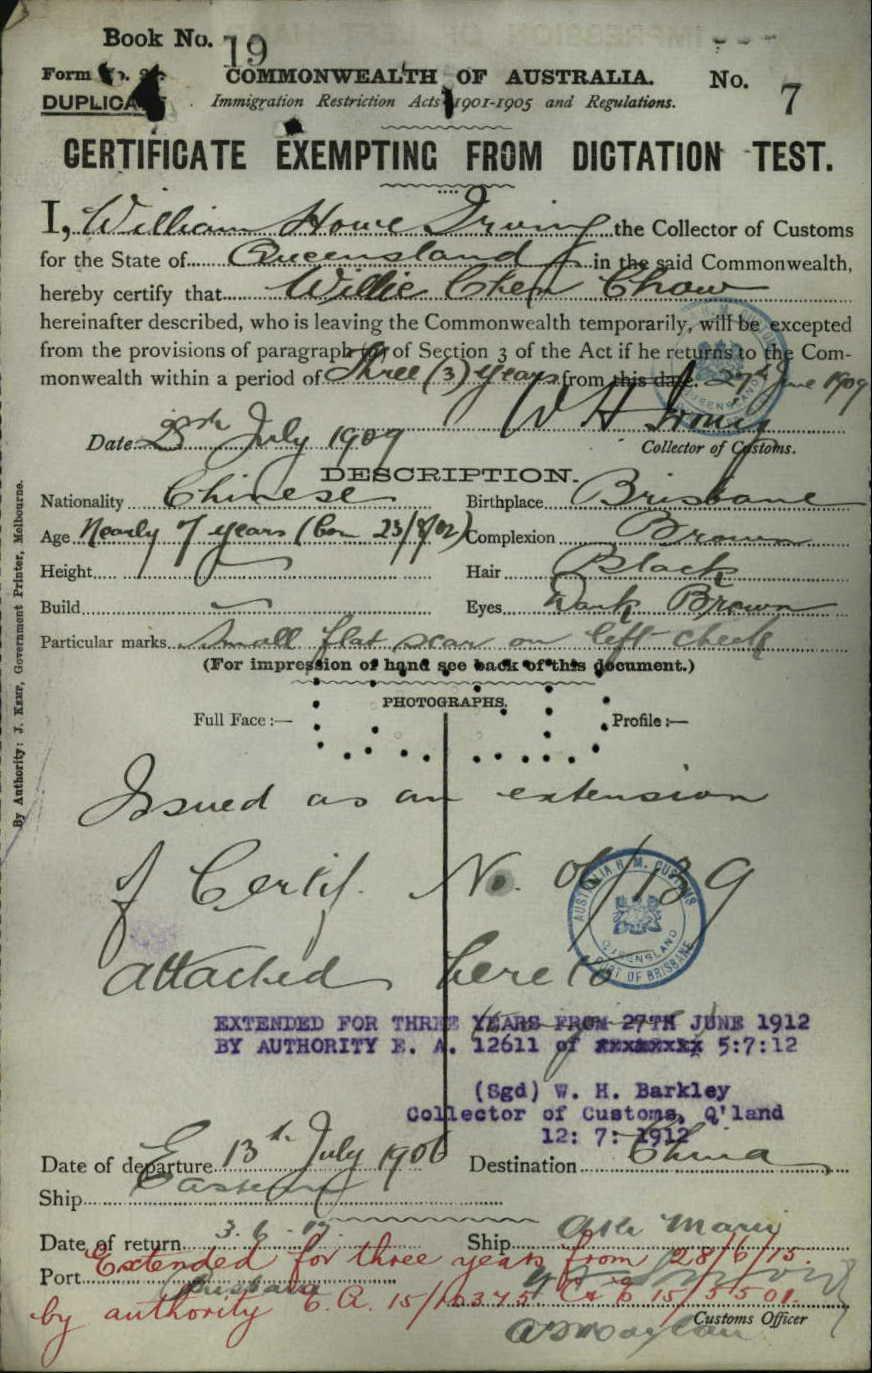 Book No. 19
Form
COMMONWEALTH OF AUSTRALIA.
No. 7
DUPLICATE
Immigration Restriction Acts 1901-1905 and Regulations.
CERTIFICATE EXEMPTING FROM DICTATION TEST.
I, William Howe Irving the Collector of Customs
for the State of Queensland in the said Commonwealth,
hereby certify that Willie Chen Chow
hereinafter described, who is leaving the Commonwealth temporarily, will be excepted
from the provisions of paragraph of Section 3 of the Act if he returns to the Com-
monwealth within a period of Three (3) years from this date. 27th June 1909
W H Irving
Date 23rd July 1909
Collector of Customs.
DESCRIPTION.
Nationality Chinese
Birthplace Brisbane
Age Nearly 7 years
Complexion Brown
Height
Hair Black
Build
Eyes Dark Brown
Particular marks Small flat scar on left cheek
(For impression of hand see back of this document.)
PHOTOGRAPHS.
Full Face :—
Profile :—
Issued as an extension
of Certif. No. 06/139
attached hereto
AUSTRALIA H. M. CUSTOMS
QUEENSLAND
PORT OF BRISBANE
EXTENDED FOR THREE YEARS FROM 27TH JUNE 1912
BY AUTHORITY E. A. 12611 of 5:7:12
(Sgd) W. H. Barkley
Collector of Customs, Q'land
12: 7: 1912
Date of departure 13th July 1906
Destination China
Ship Eastern
Date of return 3. 6. 17.
Ship Aki Maru
Extended for three years from 28/6/15.
Port Brisbane
by authority E. A. 15/
Customs Officer
By Authority: J. Kemp, Government Printer, Melbourne.